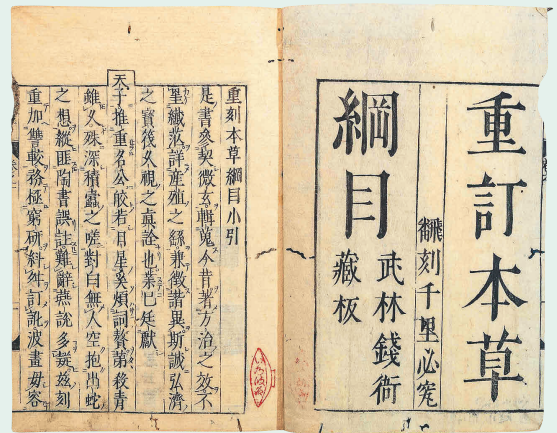 重訂本草
綱目
翻刻千里必究
武林錢衙
藏板
重刻本草綱目小引
是書參契微玄輯蒐今昔著方治之效不
詳産殖之繇兼徵諸異斯誠弘濟
之寳筏久視之真詮也業已廷獻
天子推重名公皎若日星奚煩詞贅第殺青
雖久殊深積蠹之嗟對白無人空抱出蛇
之想縱匪陶書誤註難辭燕說多疑玆刻
重加讐較務極窮硏糾舛訂訛波畫毋容